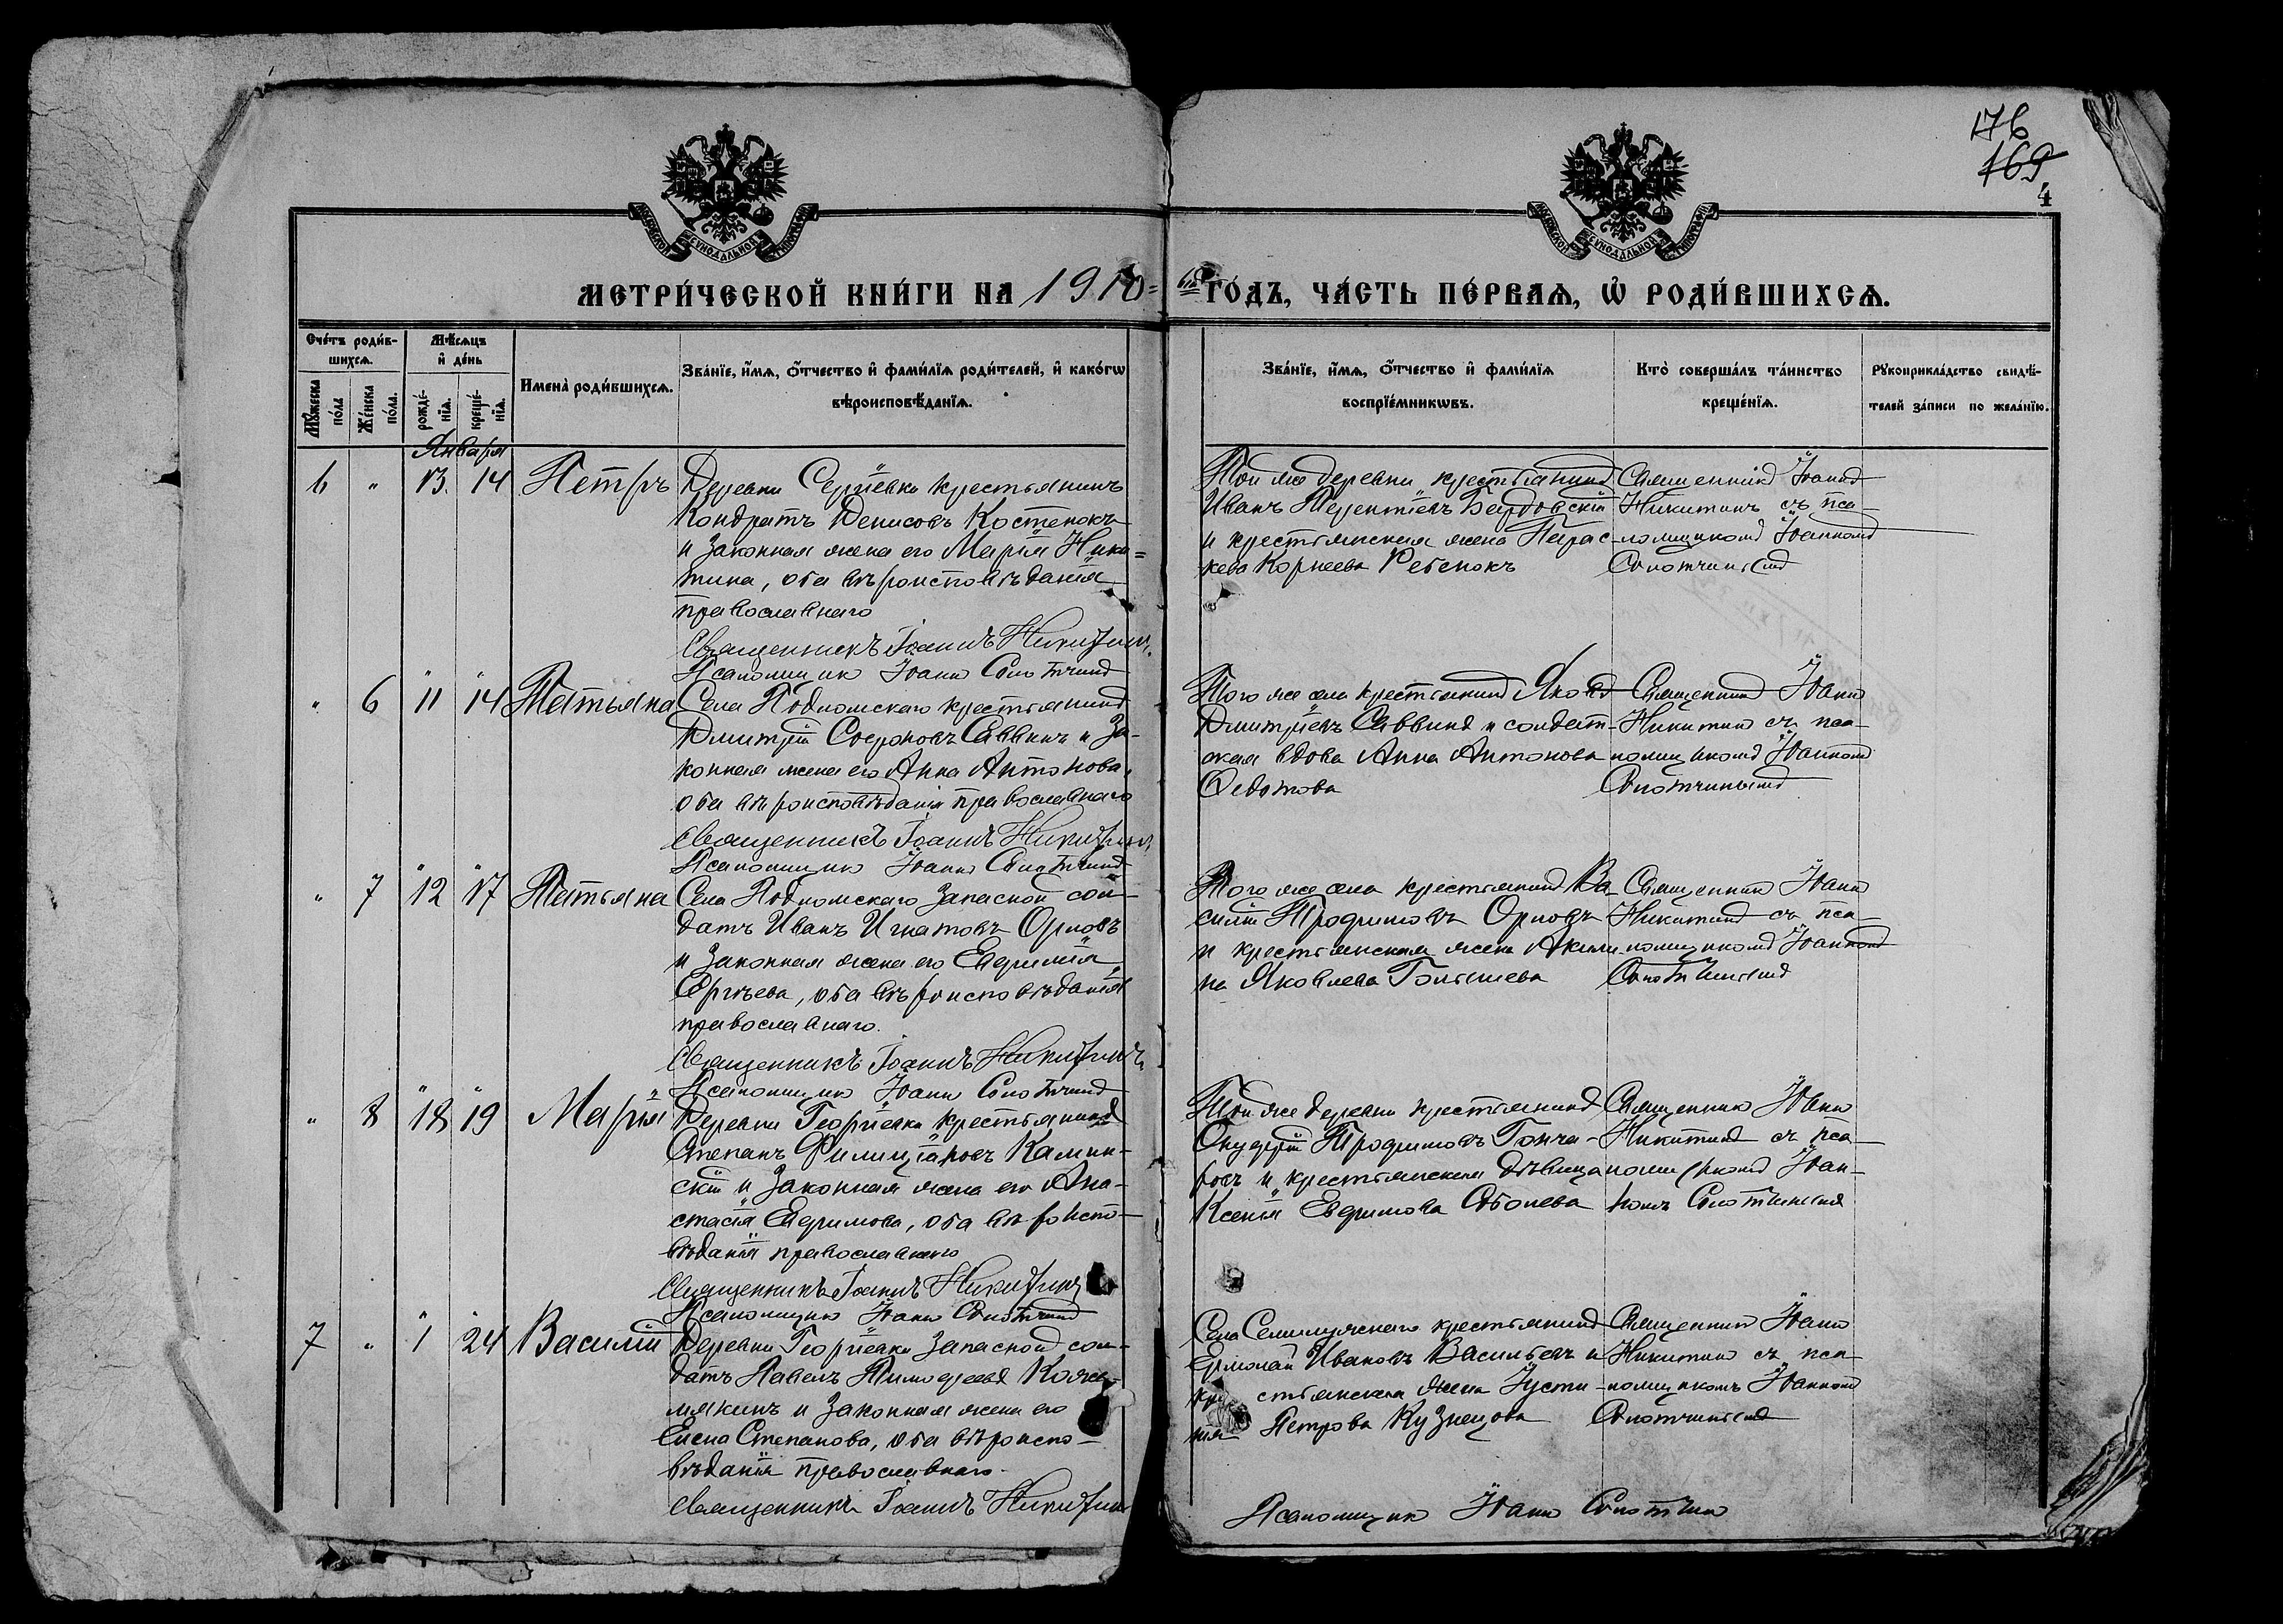 176
169
4
МОСКОВСКОЙ СѴНОДАЛЬНОЙ ТИПОГРАФІИ
МОСКОВСКОЙ СѴНОДАЛЬНОЙ ТИПОГРАФІИ
МЕТРИ́ЧЕСКОЙ КНИ́ГИ НА 1910=
ый ГО́ДЪ, ЧА́СТЬ ПЕ́РВАѦ, Ѡ҆ РОДИ́ВШИХСѦ.
Сче́тъ роди́в-
шихсѧ.
Мꙋ́жеска по́ла
Же́нска по́ла.
Мѣ́сѧцъ
и҆ де́нь
рожде́-нїѧ.
креще́-нїѧ.
Имена̀ роди́вшихсѧ.
Зва́нїе, и҆́мѧ, ѻ҆́тчество и҆ фами́лїѧ роди́телей, и҆ како́гѡ
вѣроисповѣ́данїѧ.
Зва́нїе, и҆́мѧ, ѻ҆́тчество и҆ фами́лїѧ
воспрїе́мникѡвъ.
Кто̀ соверша́лъ та́инство
креще́нїѧ.
Рꙋкоприкла́дство свидѣ́-
телей за́писи по жела́нїю.
Января
6 " 13. 14 Петръ
Деревни Сергіевки крестьянинъ
Кондратъ Денисовъ Костенокъ
и законная жена его Марія Ники=
тина, оба вѣроисповѣданія
православнаго
Священникъ Іоаннъ Никитинъ.
Псаломщикъ Іоаннъ
Той же деревни крестьянинъ
Иванъ Терентіевъ Бардовскій
и крестьянская жена Парас-
кева Корнеева Ребенокъ
Священникъ Іоаннъ
Никитинъ съ пса-
ломщикомъ Іоанномъ
" 6 11 14 Татьяна
Села Подломскаго крестьянинъ
Дмитрій Софроновъ Саввинъ и за-
конная жена его Анна Антонова,
оба вѣроисповѣданія православнаго
Священникъ Іоаннъ Никитинъ
Псаломщикъ Іоаннъ
Того же села крестьянинъ Яковъ
Дмитріевъ Саввинъ и солдат-
ская вдова Анна Антонова
Федотова
Священникъ Іоаннъ
Никитинъ съ пса-
ломщикомъ Іоанномъ
" 7 12 17 Татьяна
Села Подломскаго запасной сол-
датъ Иванъ Игнатовъ Орловъ
и законная жена его Евфимія
Сергѣева, оба вѣроисповѣданія
православнаго.
Священникъ Іоаннъ Никитинъ
Псаломщикъ Іоаннъ
Того же села крестьянинъ Ва-
силій Трофимовъ Орловъ
и крестьянская жена Акили-
на Яковлева Голышева
Священникъ Іоаннъ
Никитинъ съ пса-
ломщикомъ Іоанномъ
" 8 18 19 Марія
Деревни Георгіевки крестьянинъ
Степанъ Камин-
скій и законная жена его Ана-
стасія Евфимова, оба вѣроиспо-
вѣданія православнаго
Священникъ Іоаннъ Никитинъ
Псаломщикъ Іоаннъ
Той же деревни крестьянинъ
Онуфрій Трофимовъ Гонча-
ровъ и крестьянская дѣвица
Ксенія Евфимова Соболева
Священникъ Іоаннъ
Никитинъ съ пса-
ломщикомъ Іоан-
номъ
7 " 1 24 Василій
Деревни Георгіевки запасной сол-
датъ Павелъ Тимофеевъ Коже-
мякинъ и законная жена его
Елена Степанова, оба вѣроиспо-
вѣданія православнаго.
Священникъ Іоаннъ Никитинъ
Села крестьянинъ
Ермолай Ивановъ Васильевъ и
крестьянская жена Іусти-
нія Петрова Кузнецова
Священникъ Іоаннъ
Никитинъ съ пса-
ломщикомъ Іоанномъ
Псаломщикъ Іоаннъ